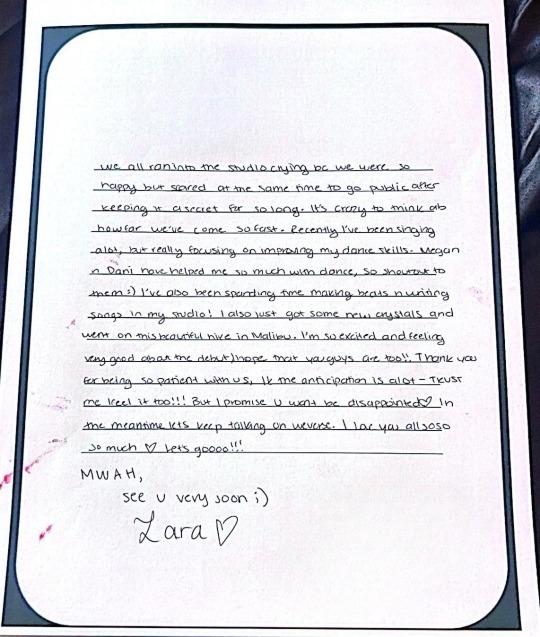 we all ran into the studio crying bc we were so
happy but scared at the same time to go public after
keeping it a secret for so long. It's crazy to think ab
how far we've come so fast. Recently I've been singing
alot, but really focusing on improving my dance skills. Megan
n Dani have helped me so much with dance, so shoutout to
them :) I've also been spending time making beats n writing
songs in my studio! I also just got some new crystals and
went on this beautiful hike in Malibu. I'm so excited and feeling
very good about the debut, I hope that you guys are too!! Thank you
for being so patient with us, Ik the anticipation is alot - Trust
me I feel it too!!! But I promise u wont be disappointed♡ In
the meantime lets keep talking on weverse. I love you all soso
so much ♡ Let's goooo!!!
MWAH,
see u very soon ;)
Lara ♡